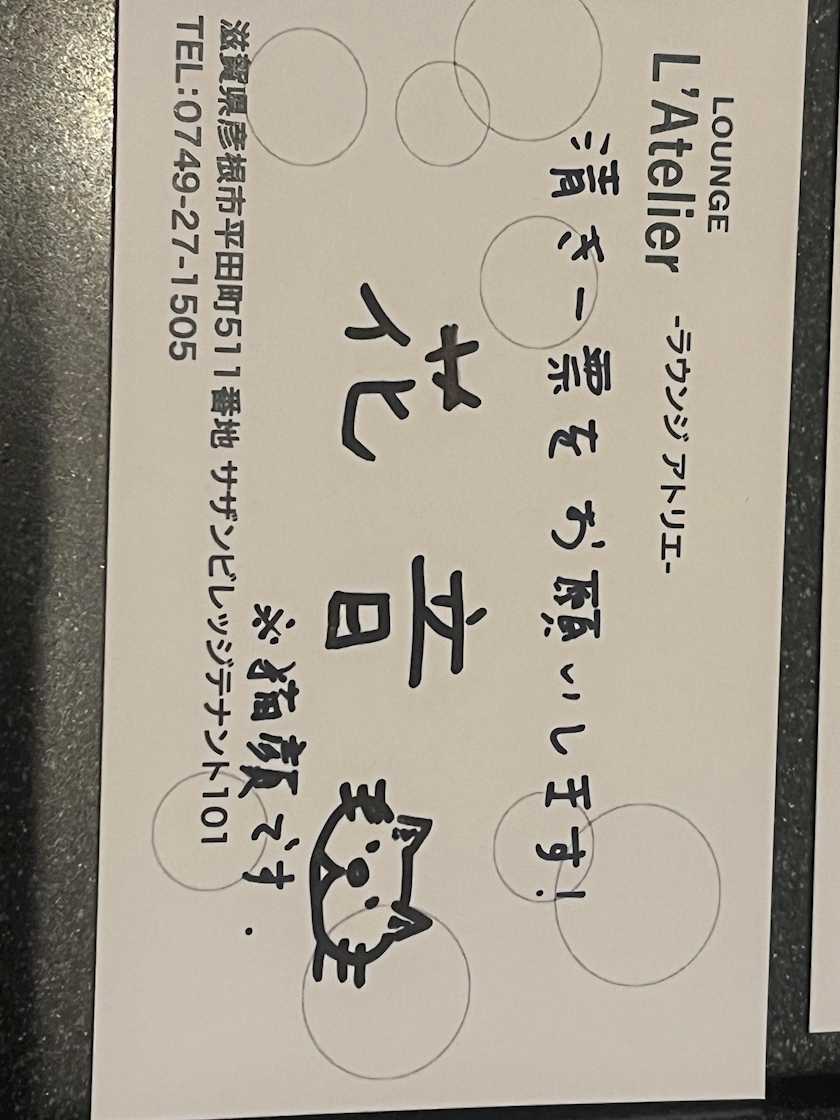 LOUNGE
L'Atelier -ラウンジ アトリエ-
清き一票をお願いします!
花音
※猫顔です.
滋賀県彦根市平田町511番地 サザンビレッジテナント101
TEL:0749-27-1505